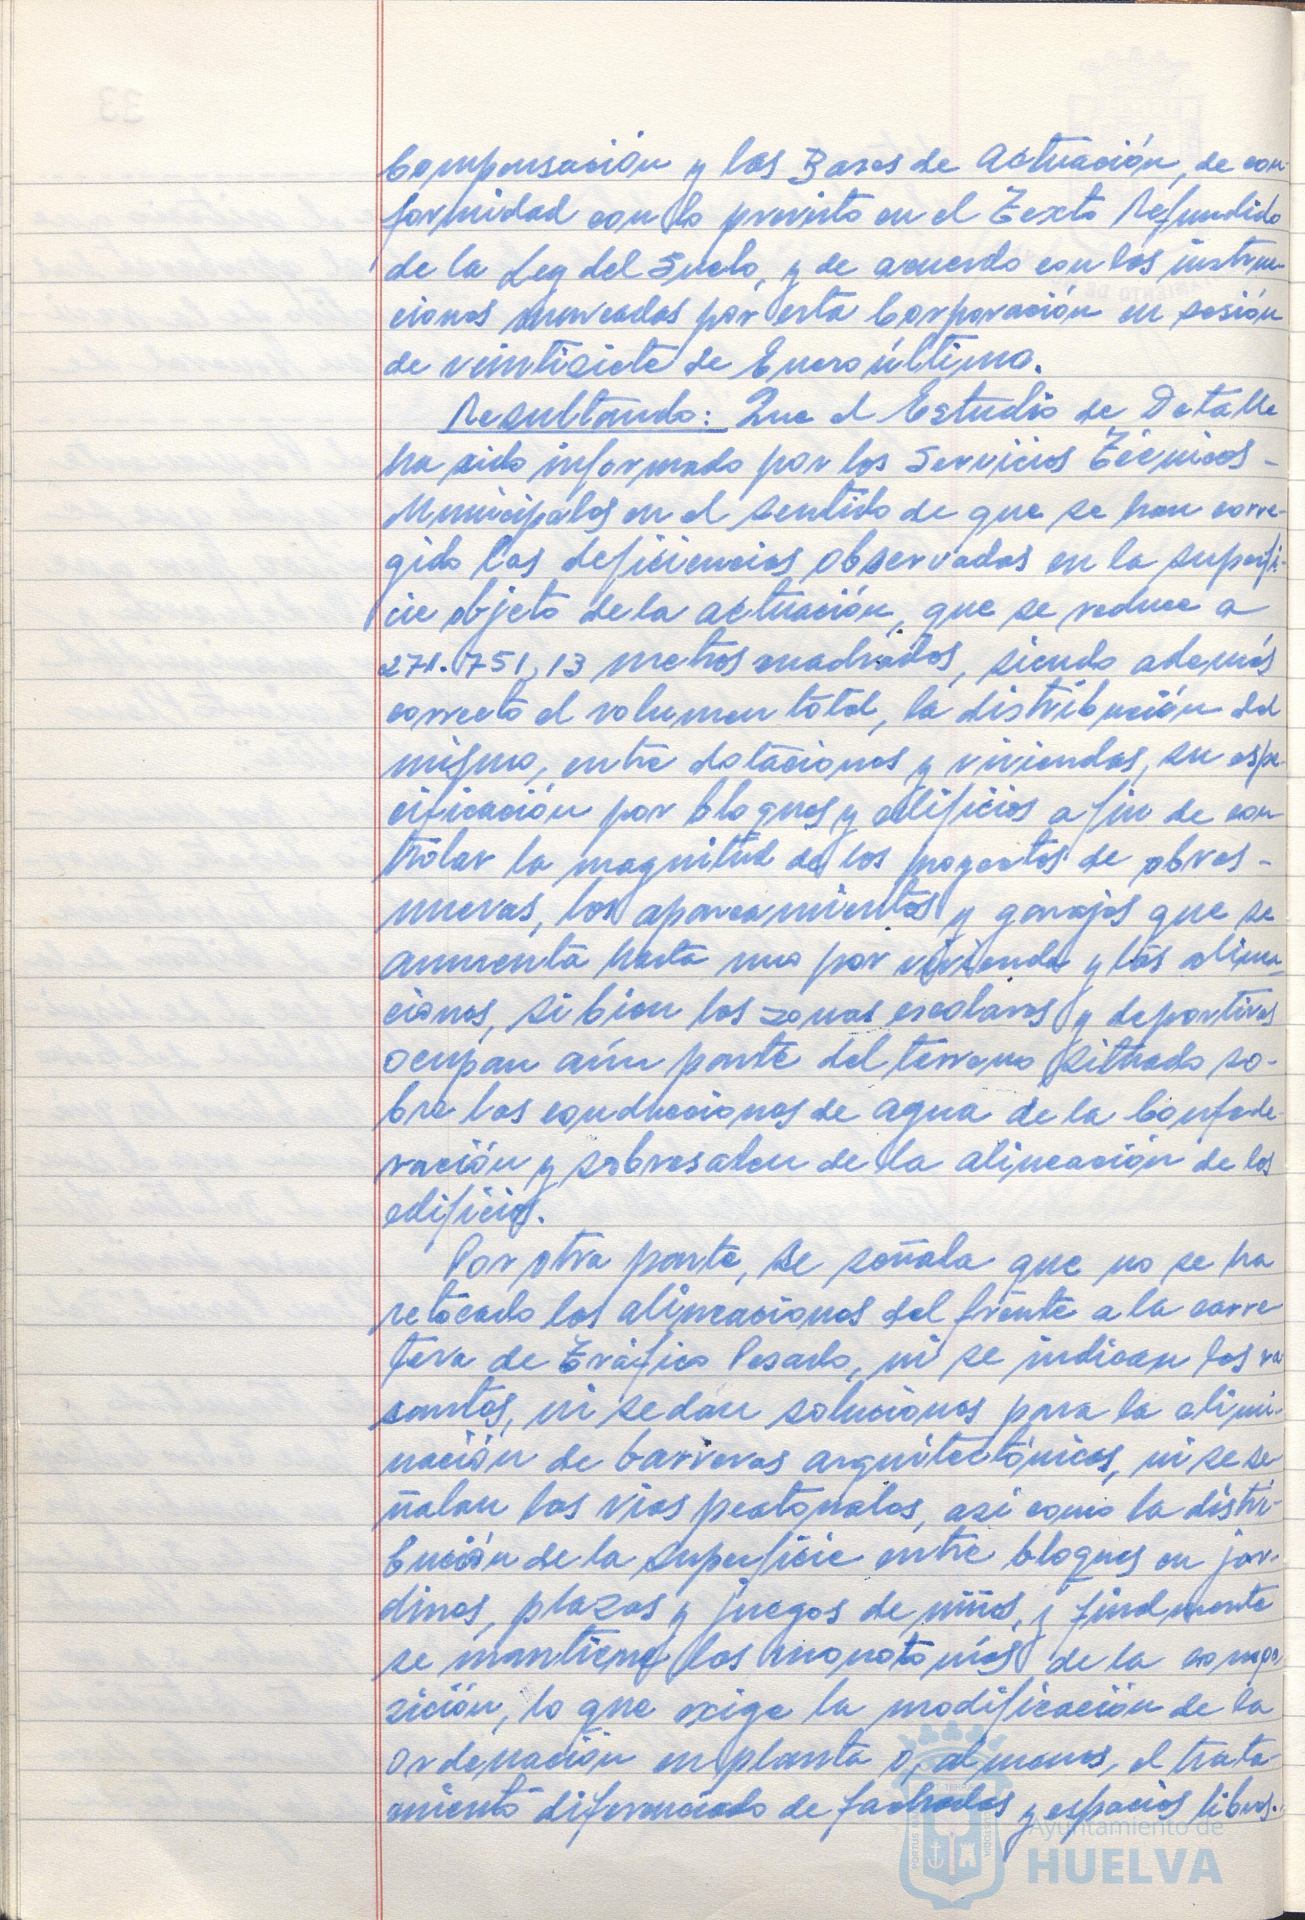 Compensación y las Bases de Actuación, de con-
formidad con lo previsto en el Texto Refundido
de la Ley del Suelo, y de acuerdo con las instruc-
ciones marcadas por esta Corporación en sesión
de veintisiete de Enero último.
Resultando: Que el Estudio de Detalle
ha sido informado por los Servicios Técnicos-
Municipales en el sentido de que se han corre-
gido las deficiencias observadas en la superfi-
cie objeto de la actuación, que se reduce a
271.751,13 metros cuadrados, siendo además
correcto el volumen total, la distribución del
mismo, entre dotaciones y viviendas, su espe-
cificación por bloques y edificios a fin de con
trolar la magnitud de los proyectos de obras-
nuevas, los aparcamientos y garajes que se
aumenta hasta uno por vivienda y las alinea-
ciones, si bien las zonas escolares y deportivas
ocupan aún parte del terreno situado so-
bre las conducciones de agua de la Confede-
ración y sobresalen de la alineación de los
edificios.
Por otra parte, se señala que no se ha
retocado las alineaciones del frente a la carre
tera de Tráfico Pesado, ni se indican las ra
santes, ni se dan soluciones para la elimi-
nación de barreras arquitectónicas, ni se se
ñalan las vías peatonales, asi como la distri-
bución de la superficie entre bloques en jar-
dines, plazas y juegos de niños, y finalmente
se mantiene las monotonías de la compo
sición, lo que exige la modificación de la
ordenación en planta o, al menos, el trata-
miento diferenciado de fachadas y espacios libres.-
Ayuntamiento de
HUELVA